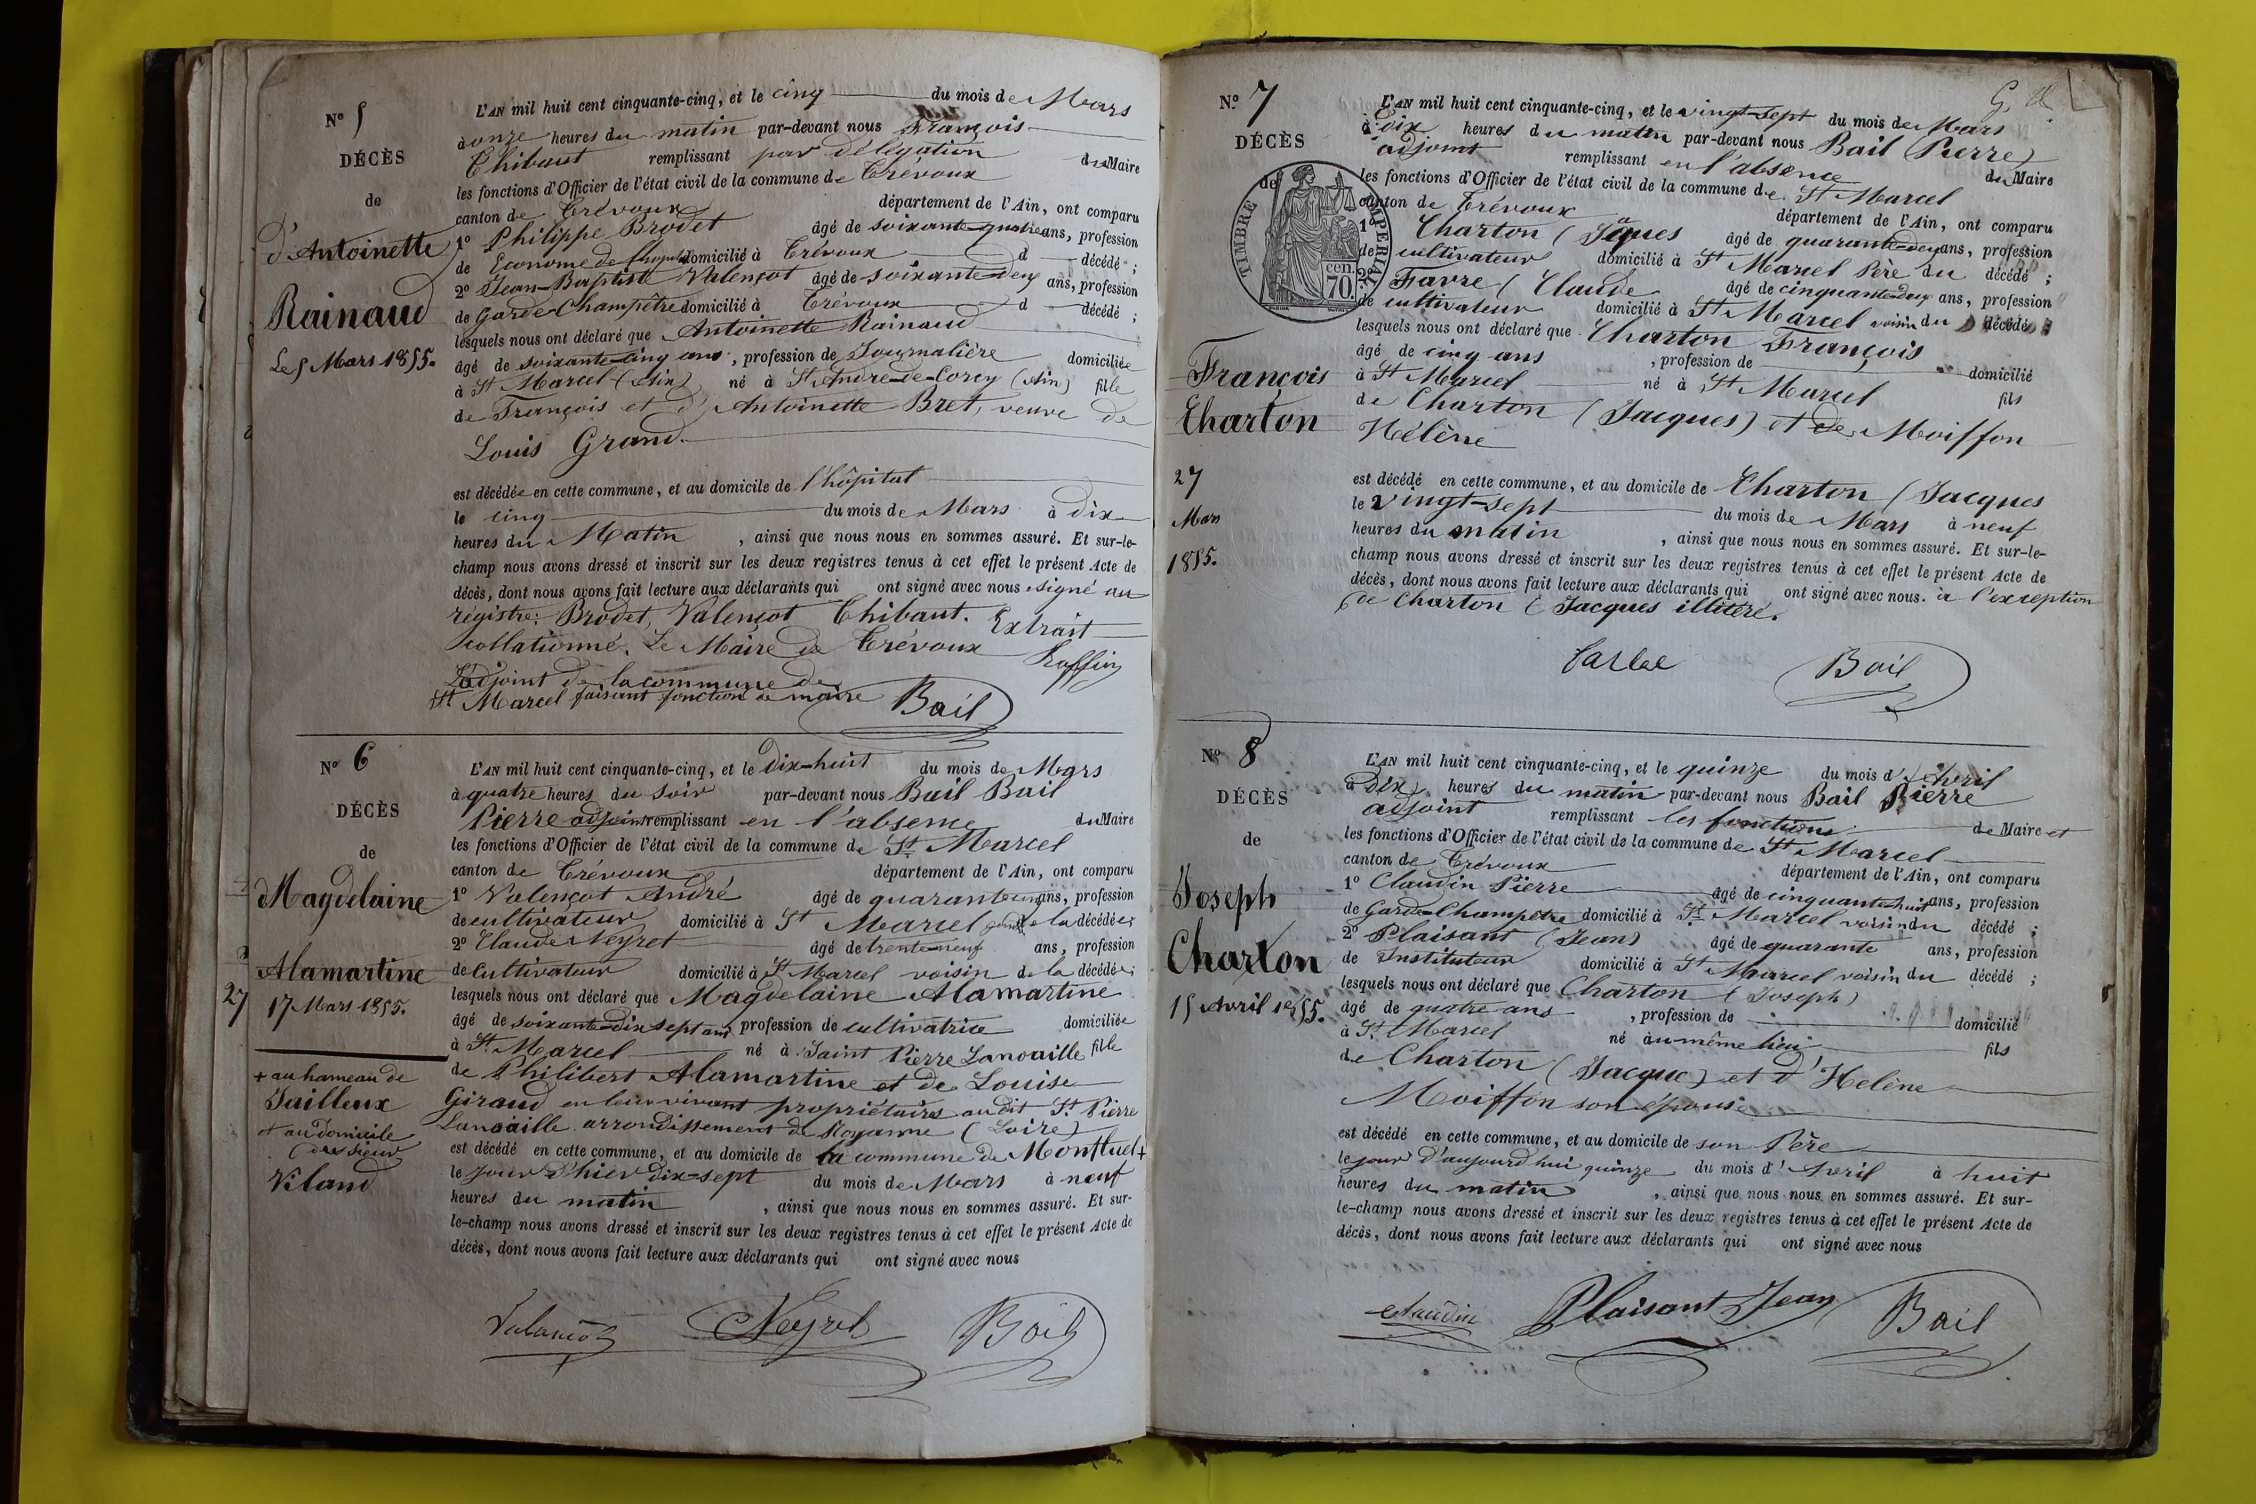 N° 5
DÉCÈS
de
d'Antoinette
Rainaud
Le 5 Mars 1855.
L'AN mil huit cent cinquante-cinq, et le cinq du mois de Mars
à onze heures du matin par-devant nous François
Thibaut remplissant par délégation du Maire
les fonctions d'Officier de l'état civil de la commune de Trévoux
canton de Trévoux département de l'Ain, ont comparu
1° Philippe Brodet âgé de soixante-quatre ans, profession
de Econome de l'hopital domicilié à Trévoux d décédé ;
2° Jean-Baptiste Valençot âgé de soixante-deux ans, profession
de Garde-Champêtre domicilié à Trévoux d décédé ;
lesquels nous ont déclaré que Antoinette Rainaud
âgé de soixante-cinq ans, profession de Journalière domiciliée
à St Marcel (Ain) né à St André-de-Corcy (Ain) fille
de François et d'Antoinette Bret, veuve de
Louis Grand.
est décédée en cette commune, et au domicile de l'hôpital
le cinq du mois de Mars à dix
heures du Matin, ainsi que nous nous en sommes assuré. Et sur-le-
champ nous avons dressé et inscrit sur les deux registres tenus à cet effet le présent Acte de
décès, dont nous avons fait lecture aux déclarants qui ont signé avec nous signé au
régistre: Brodet, Valençot Thibaut. Extrait
collationné. Le Maire de Trévoux Raffin
L'adjoint de la commune de
St Marcel faisant fonction de maire Bail
N° 6
DÉCÈS
de
Magdelaine
Alamartine
17 Mars 1855.
27
+ au hameau de
Jailleux
+ au domicile
du sieur
Viland
L'AN mil huit cent cinquante-cinq, et le dix-huit du mois de Mars
à quatre heures du soir par-devant nous Bail Bail
Pierre adjoint remplissant en l'absence du Maire
les fonctions d'Officier de l'état civil de la commune de St Marcel
canton de Trévoux département de l'Ain, ont comparu
1° Valençot André âgé de quarante ans, profession
de cultivateur domicilié à St Marcel de la décédée;
2° Claude Neyret âgé de trente-neuf ans, profession
de Cultivateur domicilié à St Marcel voisin de la décédée;
lesquels nous ont déclaré que Magdelaine Alamartine
âgé de soixante-dix sept ans, profession de cultivatrice domiciliée
à St Marcel né à Saint Pierre Lanouaille fille
de Philibert Alamartine et de Louise
Giraud en leur vivant propriétaires audit St Pierre
Lanoaille arrondissement de Royanne (Loire)
est décédé en cette commune, et au domicile de la commune de Montluel +
le jour d'hier dix-sept du mois de Mars à neuf
heures du matin, ainsi que nous nous en sommes assuré. Et sur-
le-champ nous avons dressé et inscrit sur les deux registres tenus à cet effet le présent Acte de
décès, dont nous avons fait lecture aux déclarants qui ont signé avec nous
Valançot Neyret Bail
N° 7
DÉCÈS
de
TIMBRE IMPERIAL
70 cen.
François
Charton
27
Mars
1855.
L'AN mil huit cent cinquante-cinq, et le vingt-sept du mois de Mars
à dix heures du matin par-devant nous Bail (Pierre)
adjoint remplissant en l'absence du Maire
les fonctions d'Officier de l'état civil de la commune de St Marcel
canton de Trévoux département de l'Ain, ont comparu
1° Charton (Jaques âgé de quarante-deux ans, profession
de cultivateur domicilié à St Marcel Père du décédé ;
2° Favre (Claude âgé de cinquante-deux ans, profession
de cultivateur domicilié à St Marcel voisin du décédé ;
lesquels nous ont déclaré que Charton François
âgé de cinq ans, profession de domicilié
à St Marcel né à St Marcel fils
de Charton (Jacques) et de Moiffon
Hélène
est décédé en cette commune, et au domicile de Charton (Jacques
le vingt-sept du mois de Mars à neuf
heures du matin, ainsi que nous nous en sommes assuré. Et sur-le-
champ nous avons dressé et inscrit sur les deux registres tenus à cet effet le présent Acte de
décès, dont nous avons fait lecture aux déclarants qui ont signé avec nous. à l'exception
de Charton (Jacques illitéré.
Bail
N° 8
DÉCÈS
de
Joseph
Charton
15 Avril 1855.
L'AN mil huit cent cinquante-cinq, et le quinze du mois d'Avril
à Dix heures du matin par-devant nous Bail Pierre
adjoint remplissant les fonctions de Maire et
les fonctions d'Officier de l'état civil de la commune de St Marcel
canton de Trévoux département de l'Ain, ont comparu
1° Claudin Pierre âgé de cinquante-huit ans, profession
de Garde-Champetre domicilié à St Marcel voisin du décédé ;
2° Plaisant (Jean) âgé de quarante ans, profession
de Instituteur domicilié à St Marcel voisin du décédé ;
lesquels nous ont déclaré que Charton (Joseph)
âgé de quatre ans, profession de domicilié
à St Marcel né au même lieu fils
de Charton (Jacque) et d'Helène
Moiffon son épouse
est décédé en cette commune, et au domicile de son Père
le jour d'aujourd'hui quinze du mois d'Avril à huit
heures du matin, ainsi que nous nous en sommes assuré. Et sur-
le-champ nous avons dressé et inscrit sur les deux registres tenus à cet effet le présent Acte de
décès, dont nous avons fait lecture aux déclarants qui ont signé avec nous
Claudin Plaisant Jean Bail